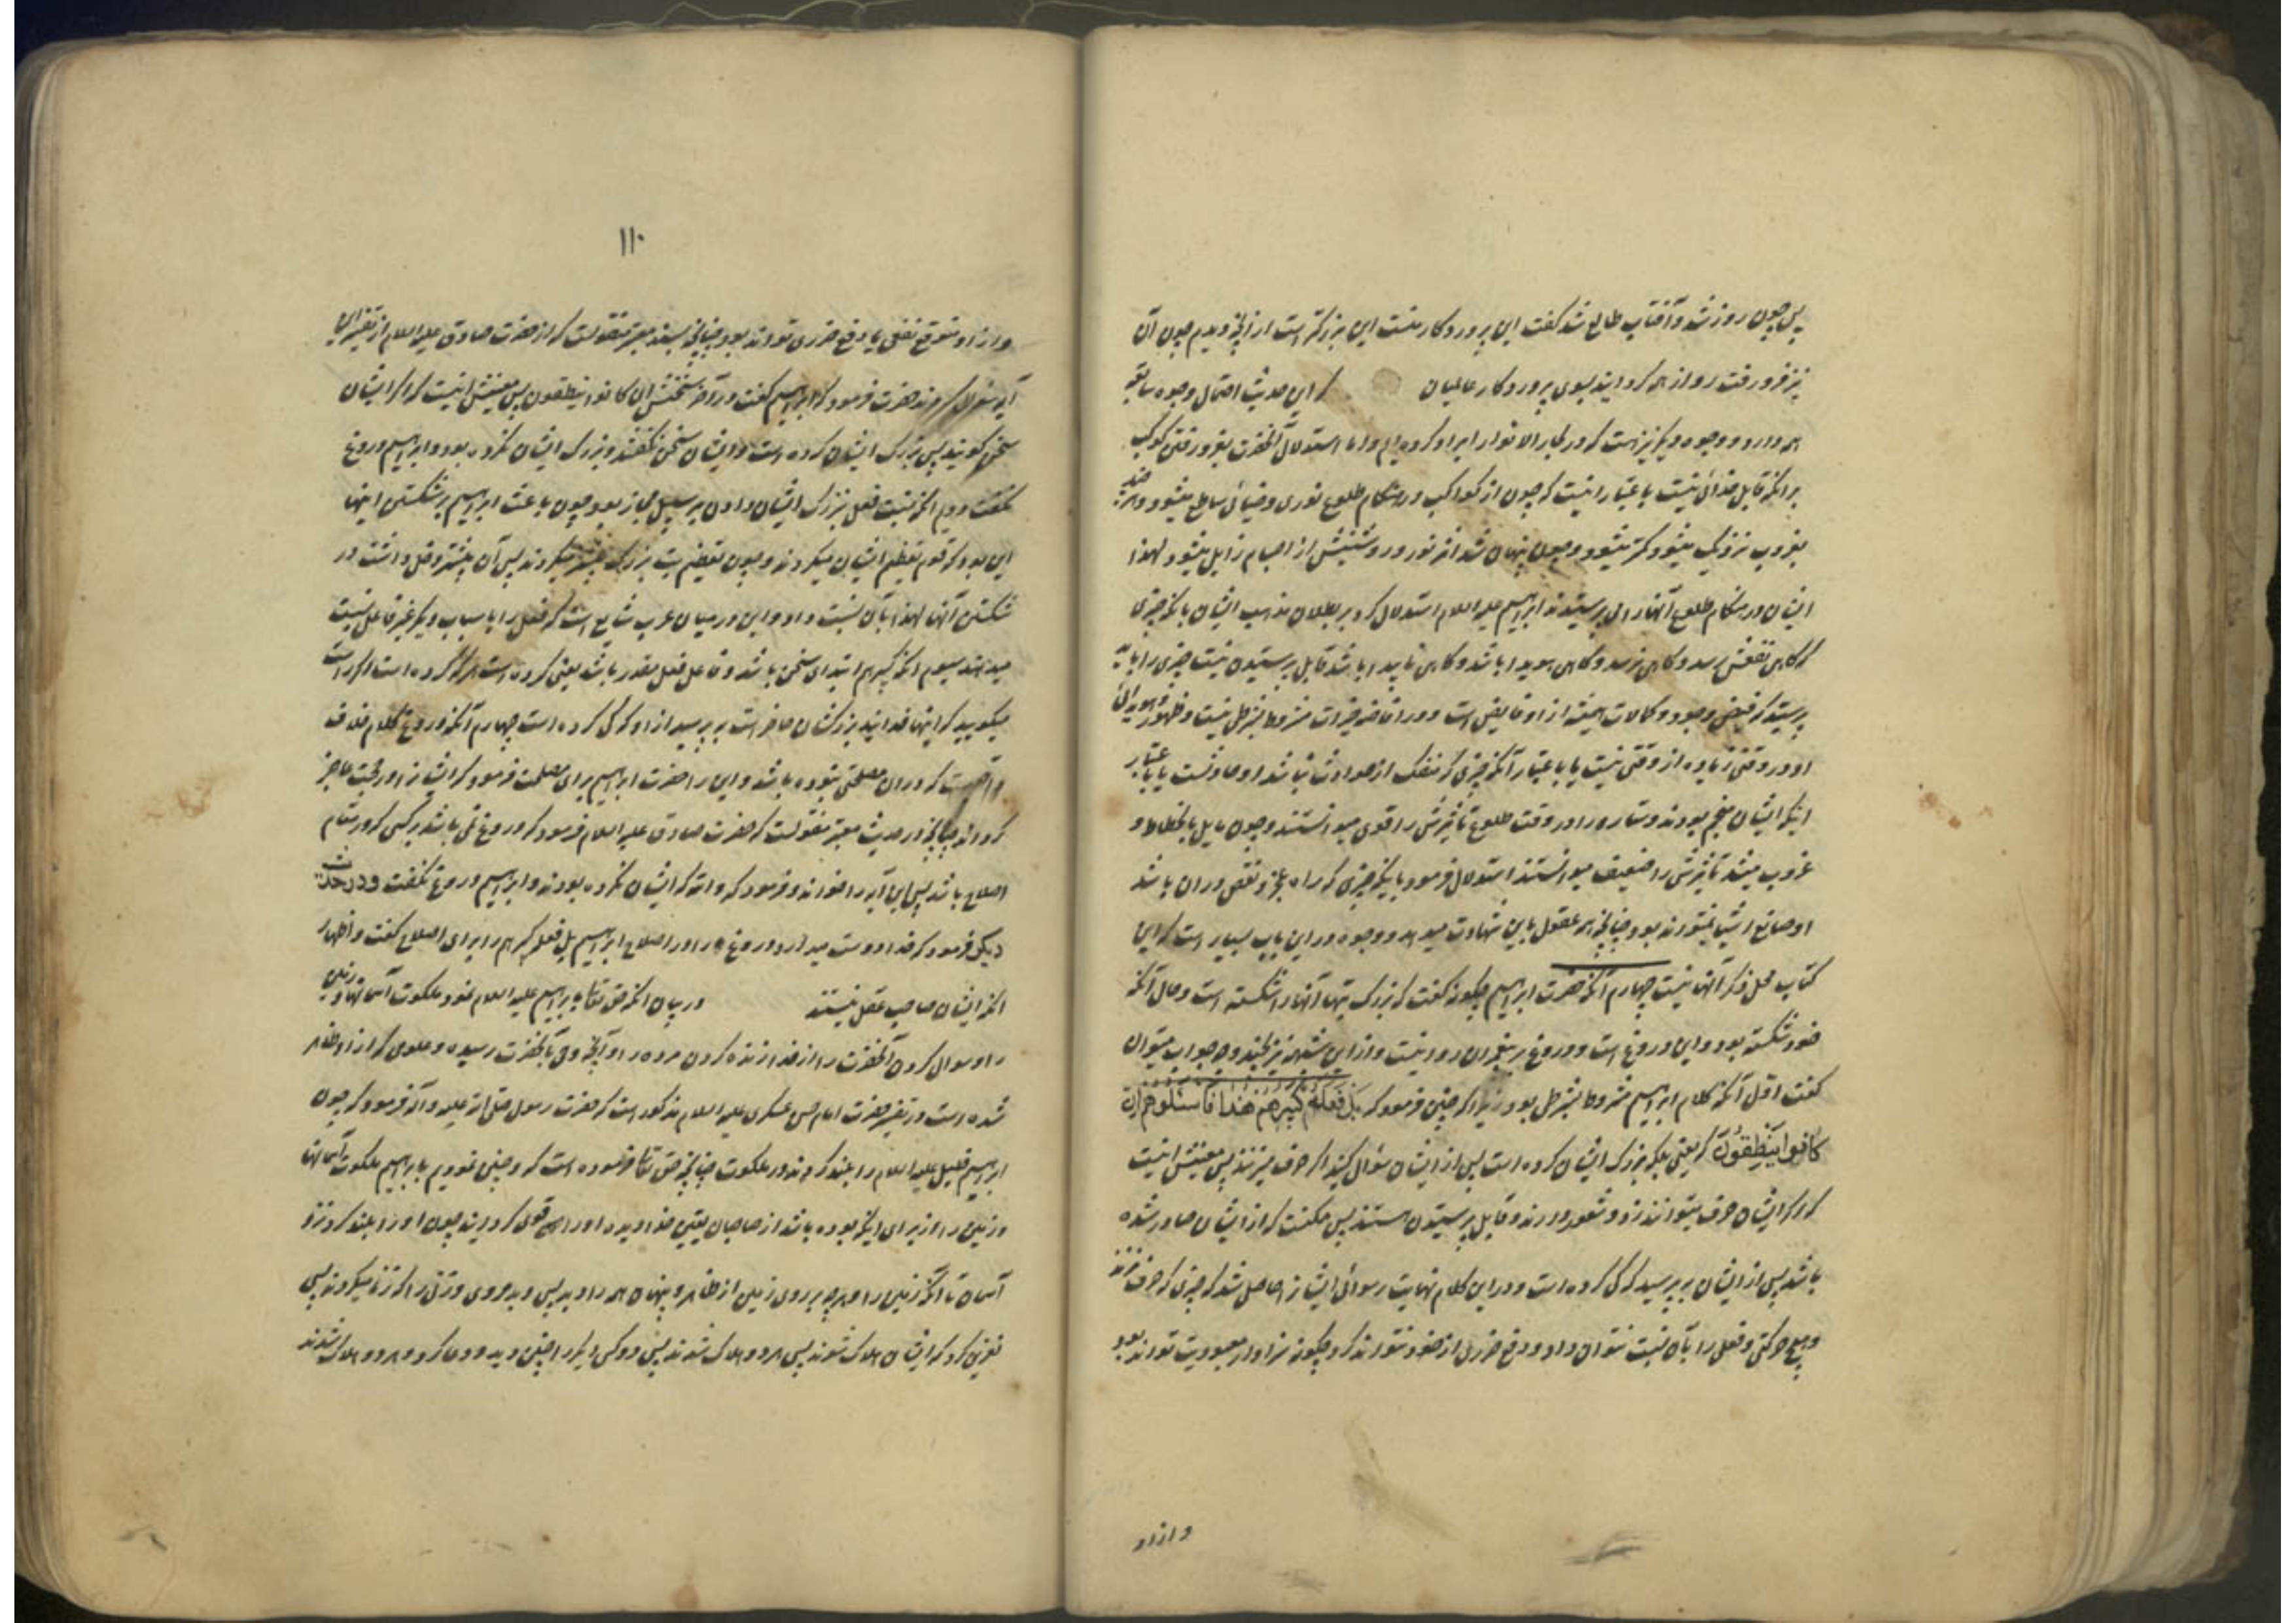 پس چون روز شد و آفتاب طالع شد گفت این پروردکار منست این بزرکتر است از آنچه دیدم چون آن
نیز فرو رفت رو از همه کردانید بسوی پروردکار عالمیان که این حدیث احتمال وجوه سابقه
همه دارد و وجوه دیکر نیز هست که در بحار الانوار ایراد کرده ایم و اما استدلال آنحضرت بفرو رفتن کوکب
بر آنکه قابل خدائی نیست باعتبار اینست که چون از کواکب در هنکام طلوع نوری و ضیائی ساطع میشود و هر چند
بغروب نزدیک میشود کمتر میشود و چون پنهان شد اثر نور و روشنیش از اجسام زایل میشود لهذا
ایشان در هنکام طلوع آنها را می پرستیدند ابراهیم علیه السلام استدلال کرد بر بطلان مذهب ایشان بانکه چیزی
که کاهی نفعش برسد و کاهی نرسد و کاهی هویدا باشد و کاهی ناپیدا باشد قابل پرستیدن نیست چیزی را باید
پرستید که فیض وجود و کمالات همیشه از او فایض است و در افاضه خیرات مشروط بشرطی نیست و ظهور و هویدائی
او در وقتی زیاده از وقتی نیست یا باعتبار آنکه چیزی که منفک از حوادث نباشد او حادثست یا باعتبار
اینکه ایشان منجم بودند و ستاره را در وقت طلوع تاثیرش را قوی میدانستند و چون مایل بانحطاط و
غروب میشد تاثیرش را ضعیف میدانستند استدلال فرمود باینکه چیزی که راه عجز و نقص در ان باشد
او صانع اشیا نمیتواند بود چنانچه هر عقول باین شهادت میدهد و وجوه در این باب بسیار است که این
کتاب محل ذکر آنها نیست چهارم آنکه حضرت ابراهیم چکونه کفت که بزرک بتها آنها را شکسته است و حال آنکه
خود شکسته بود و این دروغ است و دروغ بر پیغمبران روا نیست و از این شبهه نیز بچند وجه جواب میتوان
کفت اول آنکه کلام ابراهیم مشروط بشرطی بود زیرا که چنین فرمود که بَل فَعَلَهُ کَبیرُهُم هٰذا فَاسئَلُوهُم اِن
کانُوا یَنطِقُونَ که یعنی بلکه بزرک ایشان کرده است پس از ایشان سؤال کنید اکر حرف میزنند پس معنیش اینست
که اکر ایشان حرف میتوانند زد و شعور دارند و قابل پرستیدن هستند پس ممکنست که از ایشان صادر شده
باشد پس از ایشان بپرسید که کی کرده است و در این کلام نهایت رسوائی ایشان حاصل شد که چیزی که حرف نزند
و هیچ حرکتی و فعلی را بآن نسبت نتوان داد و دفع ضرری از خود نتواند کرد چکونه سزاوار معبودیت تواند بود
و از او
۱۱۰
و از او متوقع نفعی یا دفع ضرری تواند بود چنانچه بسند معتبر منقولست که از حضرت صادق علیه السلام از تفسیر این
آیه سؤال کردند حضرت فرمود که ابراهیم کفت در آخر سخنش ان کانوا ینطقون پس معنیش اینست که اکر ایشان
سخن کویند پس بزرک ایشان کرده است و ایشان سخن نکفتند و بزرک ایشان نکرده بود و ابراهیم دروغ
نکفت دویم آنکه نسبت فعل ببزرک ایشان دادن بر سبیل مجاز بود چون باعث ابراهیم بر شکستن اینها
این بود که قوم تعظیم ایشان میکردند و چون تعظیم بت بزرک بیشتر میکردند پس آن بیشتر دخل داشت در
شکستن آنها لهذا بآن نسبت داد و این در میان عرب شایع است که فعل را باسباب دیکر غیر فاعل نسبت
میدهند سیوم آنکه کبیرهم ابتدای سخن باشد و فاعل فعل مقدر باشد یعنی کرده است هر که کرده است اکر راست
میکویید که اینها خدایند بزرکشان حاضر است بپرسید از او که کی کرده است چهارم آنکه دروغ کلام خلاف
واقعیست که در ان مصلحتی نبوده باشد و این را حضرت ابراهیم برای مصلحت فرمود که ایشانرا در حجت عاجز
کرداند چنانچه در حدیث معتبر منقولست که حضرت صادق علیه السلام فرمود که دروغ نمی باشد بر کسی که در مقام
اصلاح باشد پس این آیه را خواند و فرمود که والله که ایشان نکرده بودند و ابراهیم دروغ نکفت و در حدیث
دیکر فرمود که خدا دوست میدارد دروغ را در اصلاح ابراهیم بل فعله کبیرهم را برای اصلاح کفت و اظهار
آنکه ایشان صاحب عقل نیستند در بیان آنکه حق تعالی بابراهیم علیه السلام نمود ملکوت آسمانها و زمین
را و سوال کردن آنحضرت را از خدا زنده کردن مرده را و آنچه وحی بآنحضرت رسیده و علومی که از او ظاهر
شده است در تفسیر حضرت امام حسن عسکری علیه السلام مذکور است که حضرت رسول صلی الله علیه وآله فرمود که چون
ابراهیم خلیل علیه السلام را بلند کردند در ملکوت چنانچه حق تعالی فرموده است که و چنین نمودیم بابراهیم ملکوت آسمانها
و زمین را از برای اینکه بوده باشد از صاحبان یقین خدا دیده او را قوی کردانید چون او را بلند کرد نزد
آسمان تا آنکه زمین را و هر چه بر روی زمین از ظاهر و پنهان همه را دید پس دید مردی و زنی را که زنا میکردند پس
نفرین کرد که ایشان هلاک شوند پس هر دو هلاک شدند پس دو کس دیکر را چنین دید و دعا کرد و هر دو هلاک شدند